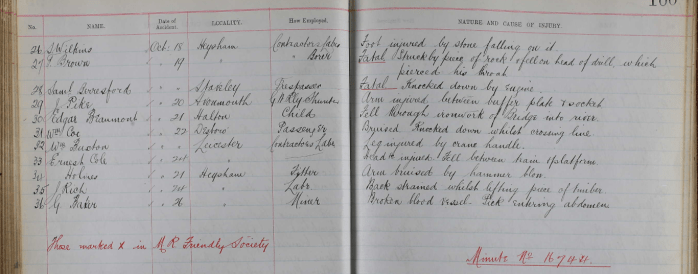 160
No. NAME. Date of Accident. LOCALITY. How Employed. NATURE AND CAUSE OF INJURY.
26 J Wilkins Oct: 18 Heysham Contractors Labr Foot injured by stone falling on it.
27 T Brown " 19 " " Borer Fatal Struck by piece of rock & fell on head of drill which
pierced his throat
28 Saml Berresford " " Stavely Trespasser Fatal Knocked down by engine.
29 J. Pike " 20 Avonmouth G W Rly Shunter Arm injured between buffer plate & socket
30 Edgar Beaumont " 21 Halton Child Fell through ironwork of Bridge into river
31 Wm Coe " 22 Desboro Passenger Bruised Knocked down whilst crossing line
32 Wm Buxton " " Leicester Contractors Labr Leg injured by crane handle.
33 Ernest Cole " 24 " injured. Fell between train & platform
34 Holmes " 21 Heysham Fitter Arm bruised by hammer blow.
35 J Rich " 24 " Labr. Back strained whilst lifting piece of timber.
36 G " 26 " Miner Broken blood vessel. Pick entering abdomen
Those marked x in M R Friendly Society
Minute No 16741.